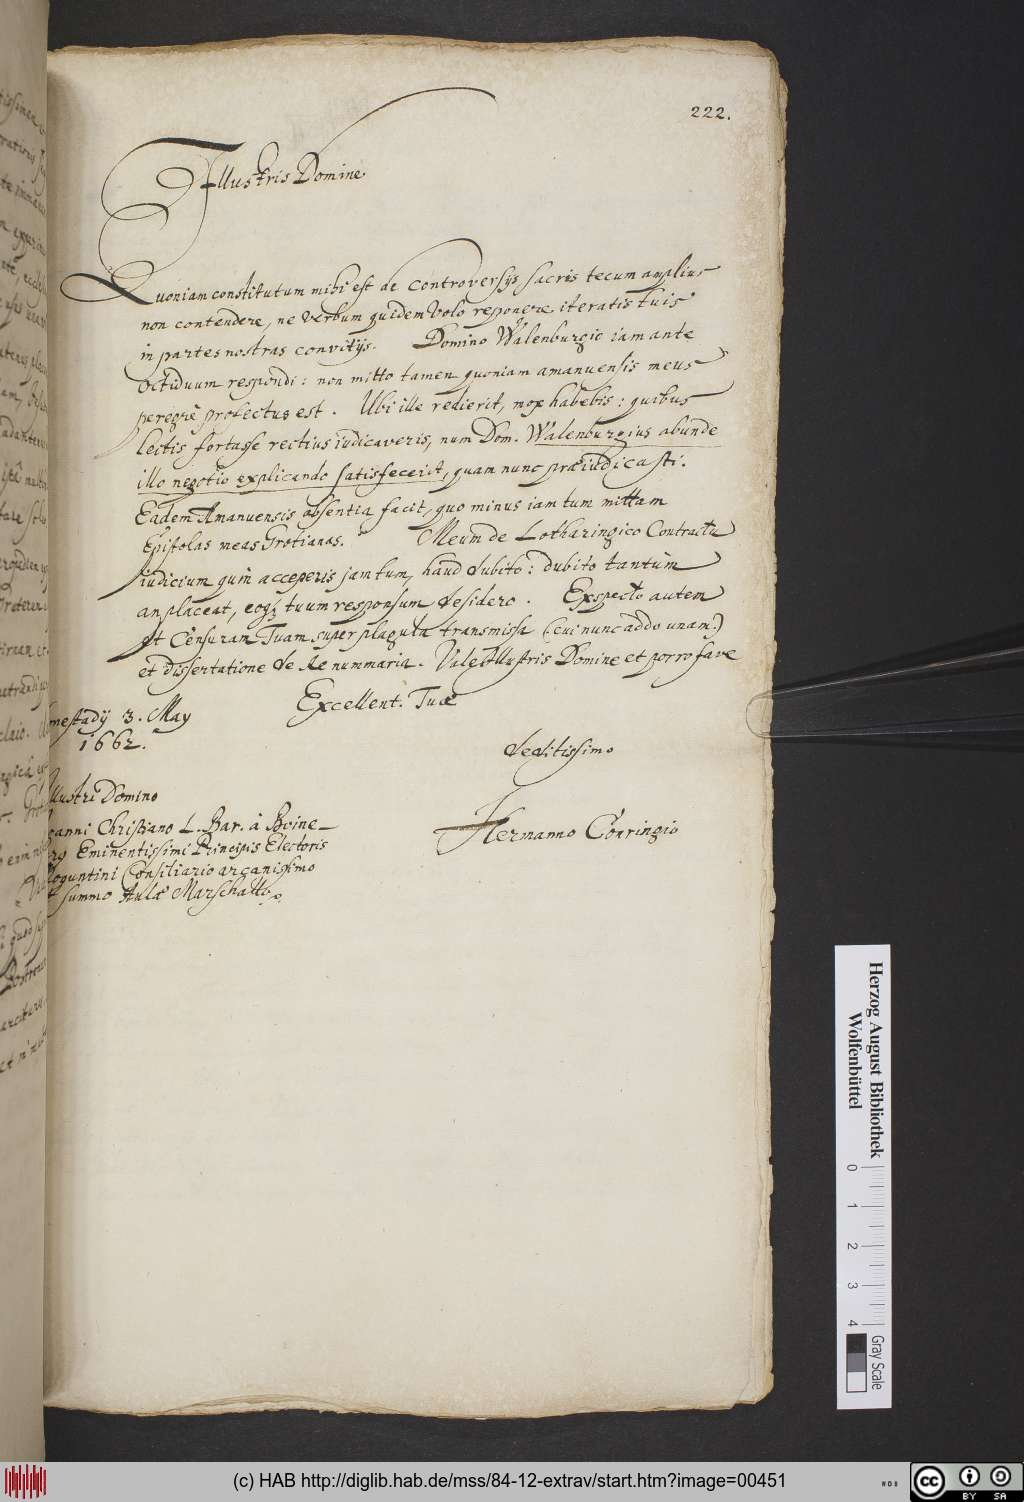 222.
Illustris Domine
Quoniam constitutum mihi est de controversijs sacris tecum amplius
non contendere, ne verbum quidem volo reponere iteratis tuis
in partes nostras convitijs. Domino Walenburgio iam ante
octiduum respondi: non mitto tamen quoniam amanuensis meus
peregrè profectus est. Ubi ille redierit, mox habebis: quibus
lectis fortasse rectius iudicaveris, num Dom. Walenburgius abunde
illo negotio explicando satisfecerit, quam nunc præiudicasti.
Eadem Amanuensis absentia facit, quo minus iam tum mittam
Epistolas meas Grotianas. Meum de Lotharingico Contractu
iudicium quin acceperis jam tum, haud dubito: dubito tantùm
an placeat, eoqz tuum responsum desidero. Exspecto autem
et Censuram Tuam super plagula transmissa (cui nunc addo unam)
et dissertatione de re nummaria. Vale Illustris Domine et porro fave
Excellent. Tuæ
mestadij 3. May
1662.
deditissimo
llustri Domino
oanni Christiano L. Bar. à Boine-
rg Eminentissimi Principis Electoris
oguntini Consiliario arcanissimo
t summo Aulæ Marschallo
Hermanno Conringio
Herzog August Bibliothek
Wolfenbüttel
0 1 2 3 4
Gray Scale
(c) HAB http://diglib.hab.de/mss/84-12-extrav/start.htm?image=00451
cc BY SA